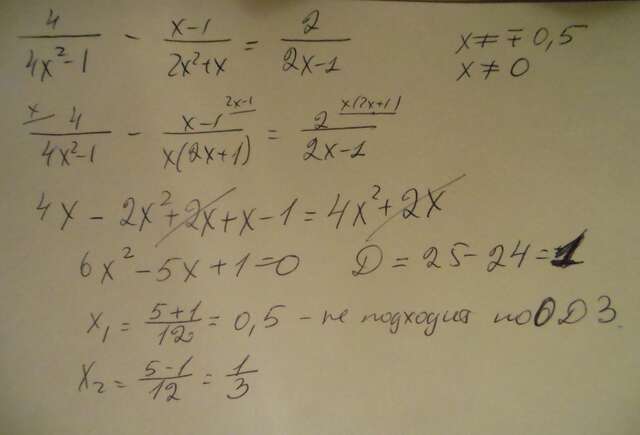 4/(4x²-1) - (x-1)/(2x²+x) = 2/(2x-1) x ≠ ∓0,5
x ≠ 0
x/ 4/(4x²-1) - (x-1)/(x(2x+1)) /2x-1 = 2/(2x-1) /x(2x+1)
4x - 2x² + 2x + x - 1 = 4x² + 2x
6x² - 5x + 1 = 0 D = 25 - 24 = 1
x₁ = (5+1)/12 = 0,5 - не подходит по ОДЗ.
x₂ = (5-1)/12 = 1/3